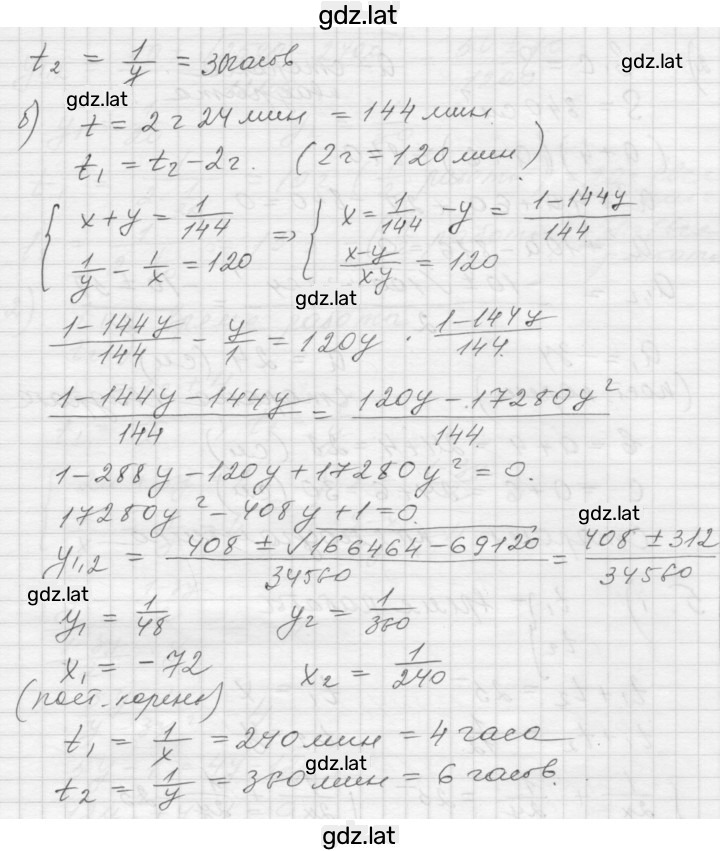 gdz.lat
t₂ = 1/y = 3 часов
gdz.lat
gdz.lat
б) t = 2 г 24 мин = 144 мин.
t₁ = t₂ - 2г. (2г = 120 мин.)
{ x + y = 1/144 => { x = 1/144 - y = (1-144y)/144
1/y - 1/x = 120 (x-y)/(xy) = 120
gdz.lat
(1-144y)/144 - y/1 = 120y · (1-144y)/144.
(1-144y-144y)/144 = (120y-17280y²)/144.
1-288y-120y+17280y² = 0.
17280y² - 408y + 1 = 0.
gdz.lat
y₁,₂ = (408 ± √(166464-69120))/34560 = (408 ± 312)/34560
gdz.lat
y₁ = 1/48 y₂ = 1/360
x₁ = -72 x₂ = 1/240
(пост. корень)
t₁ = 1/x = 240 мин = 4 часа
gdz.lat
t₂ = 1/y = 360 мин = 6 часов.
gdz.lat